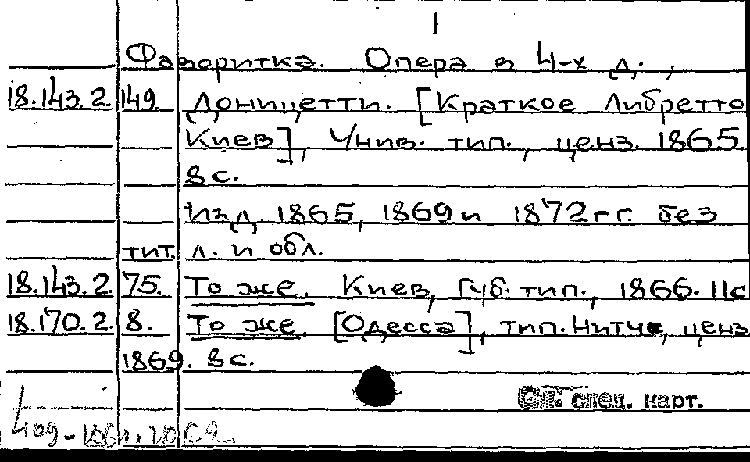 1
Фаворитка. Опера в 4-х д.,
18.143.2 149. Доницетти. [Краткое либретто
Киев], Унив. тип., ценз. 1865
8 с.
Изд. 1865, 1869 и 1872 г г. без
тит. л. и обл.
18.143.2 75. То же. Киев, Губ. тип., 1866. 11 с
18.170.2. 8. То же. [Одесса], тип. Нитче, ценз
1869. 8 с.
См. спец. карт.